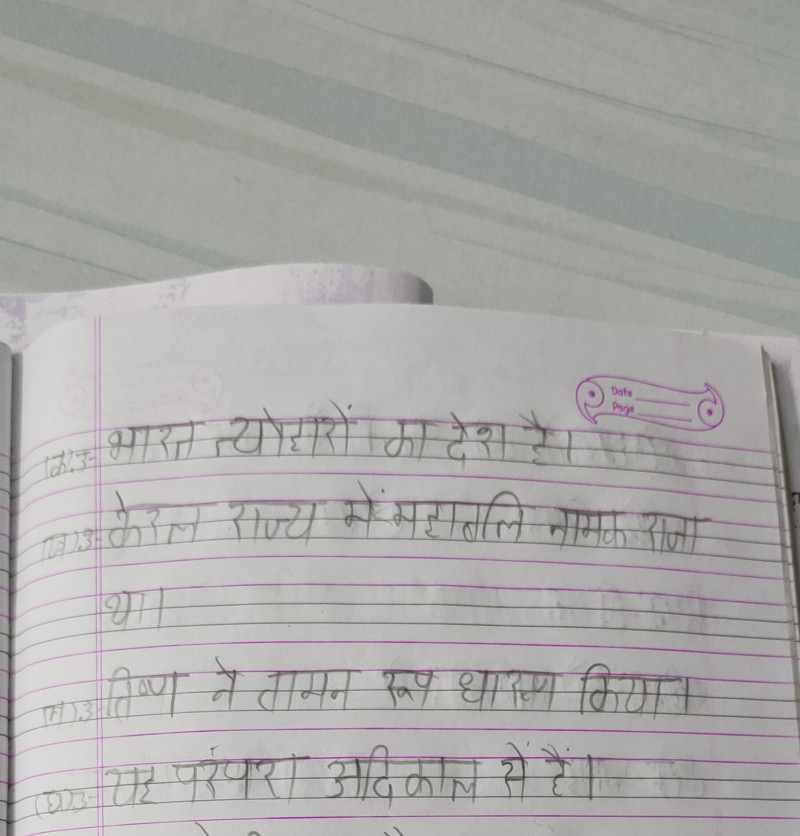 Date
Page
(क).उ- भारत त्योहारों का देश है।
(ख).उ- केरल राज्य में महाबलि नामक राजा
था।
(ग).उ- विष्णु ने वामन रूप धारण किया।
(घ).उ- यह परंपरा आदिकाल सें हैं।